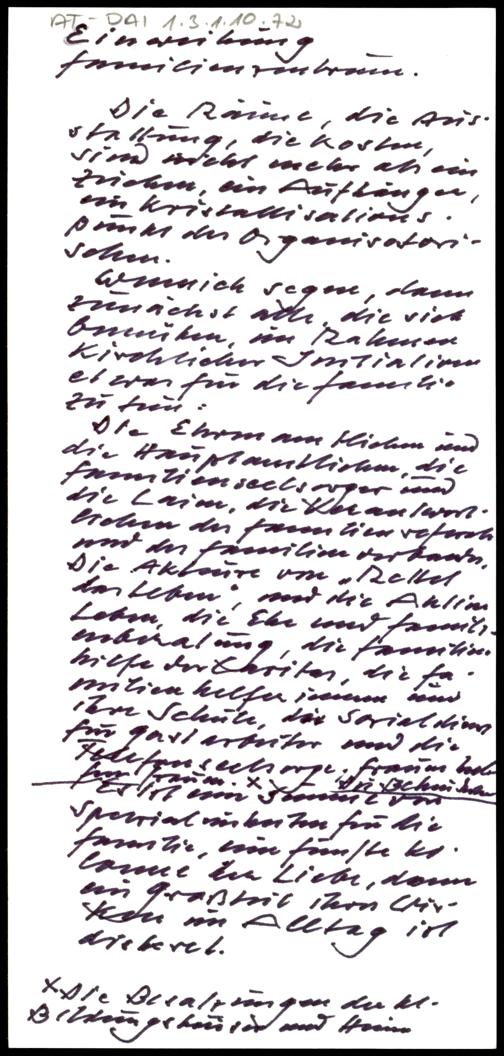 AT-DAI 1.3.1.10.72
Einweihung
Familienzentrum.
Die Räume, die Aus-
stattung, die Kosten,
sind nicht mehr als ein
Zeichen, ein Aufhänger,
ein Kristallisations-
punkt des Organisatori-
schen.
Wenn ich segne, dann
zunächst alle, die sich
bemühen, im Rahmen
kirchlicher Initiativen
etwas für die Familie
zu tun:
Die Ehrenamtlichen und
die Hauptamtlichen, die
Familienseelsorger und
die Laien, die Verantwort-
lichen des Familienreferats
und des Familienverbandes,
Die Akteure von "Rettet
das Leben", und die Aktion
Leben, die Ehe und Famili-
enberatung, die Familien-
hilfe der Caritas, die Fa-
milienhelferinnen und
ihre Schule, der Sozialdienst
für Gastarbeiter und die
Telefonseelsorge. Frauen
für Frauen. x
Es ist eine Summe von
Spezialeinheiten für die
Familie, eine fünfte Ko-
lonne der Liebe, denn
ein Großteil ihres Wir-
kens im Alltag ist
diskret.
x Die Besatzungen der kl.
Bildungshäuser und Heime